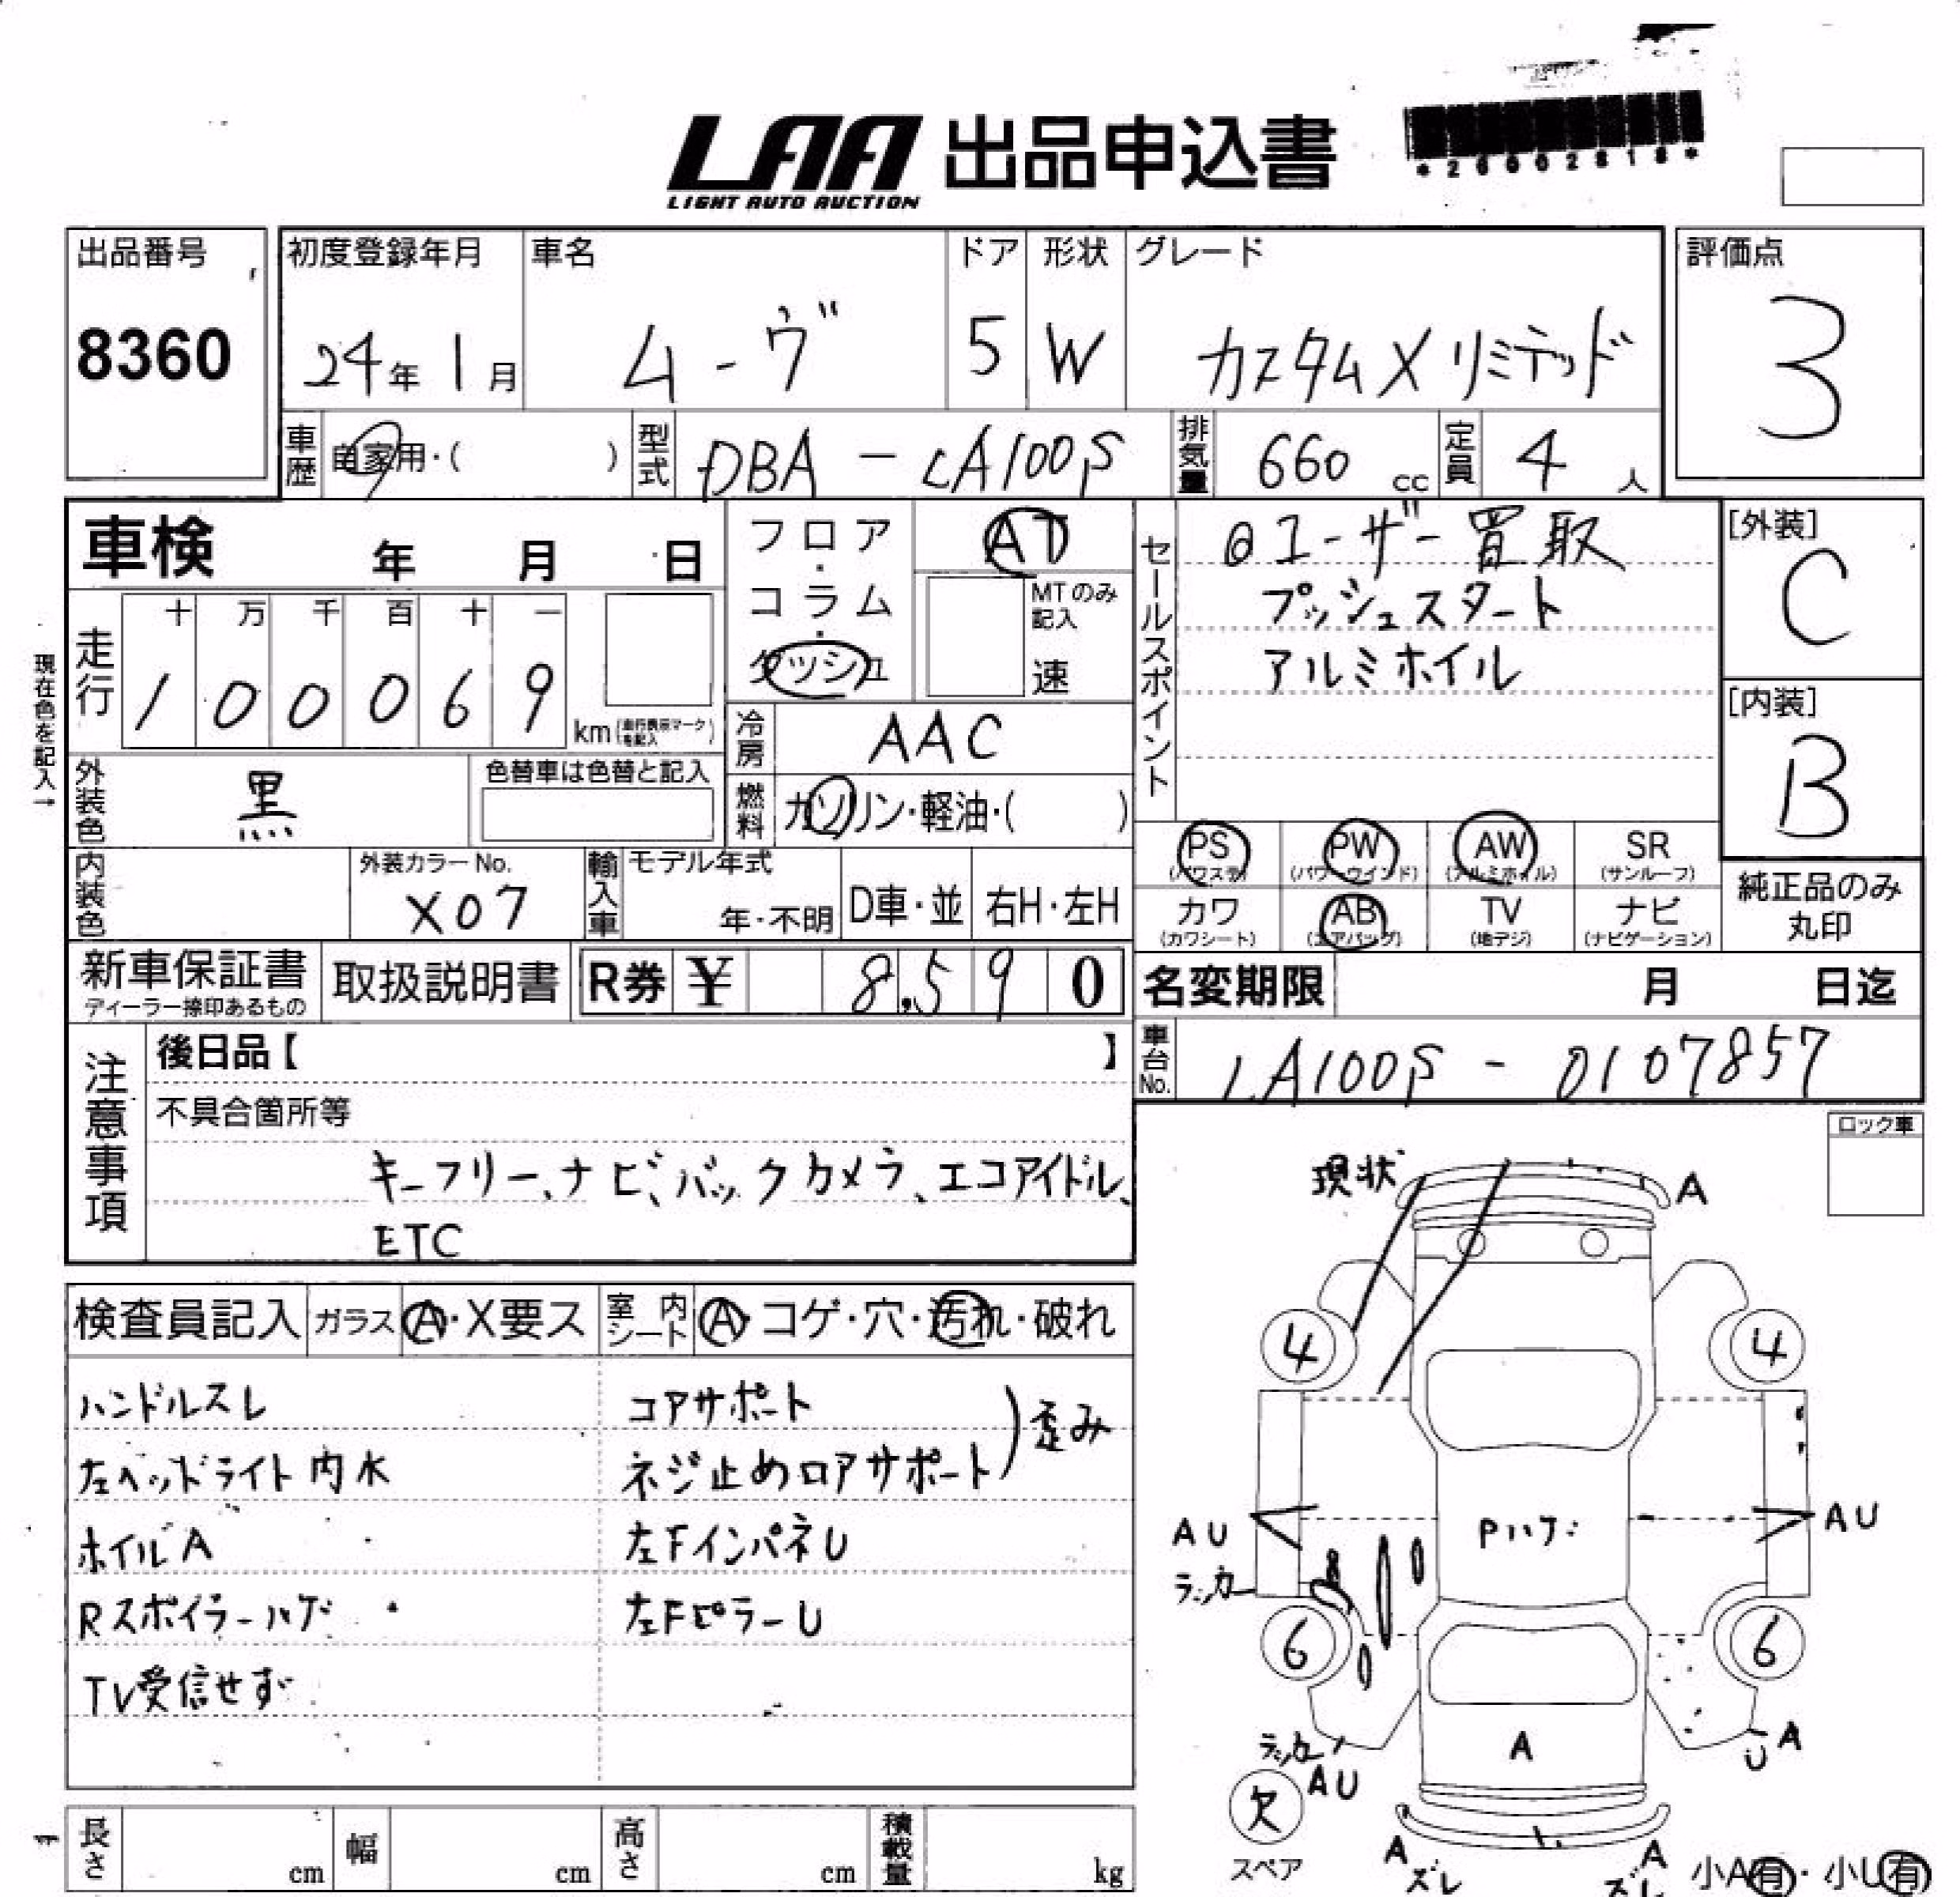 LAA 出品申込書
LIGHT AUTO AUCTION
*26002818*
出品番号
8360
初度登録年月
24年1月
車名
ムーヴ
ドア
5
形状
W
グレード
カスタムXリミテッド
評価点
3
車歴
自家用・( )
型式
DBA-LA100S
排気量
660 cc
定員
4 人
車検 年 月 日
フロア・コラム・ダッシュ
AT
MTのみ記入
速
セールスポイント
◎ユーザー買取
プッシュスタート
アルミホイル
[外装]
C
[内装]
B
現在色を記入→
走行
十 万 千 百 十 一
1 0 0 0 6 9
km (走行表示マークを記入)
冷房
AAC
外装色
黒
色替車は色替と記入
燃料
ガソリン・軽油・( )
PS (パワステ)
PW (パワーウインド)
AW (アルミホイル)
SR (サンルーフ)
カワ (カワシート)
AB (エアバッグ)
TV (地デジ)
ナビ (ナビゲーション)
純正品のみ丸印
内装色
外装カラーNo.
X07
輸入車
モデル年式
年・不明
D車・並
右H・左H
新車保証書
ディーラー捺印あるもの
取扱説明書
R券 ¥ 8,590
名変期限 月 日迄
車台No.
LA100S-0107857
注意事項
後日品【 】
不具合箇所等
キーフリー、ナビ、バックカメラ、エコアイドル、
ETC
ロック車
検査員記入
ガラス
A・X要ス
室内シート
A・コゲ・穴・汚れ・破れ
ハンドルスレ
左ヘッドライト内水
ホイルA
Rスポイラーハゲ
TV受信せず
コアサポート
ネジ止めロアサポート
)歪み
左FインパネU
左FピラーU
現状
A
4
4
AU
Pハゲ
AU
ラッカー
6
6
ラッカー
AU
A
U A
欠
スペア
A
ズレ
A
ズレ
小A有・小U有
長さ cm
幅 cm
高さ cm
積載量 kg